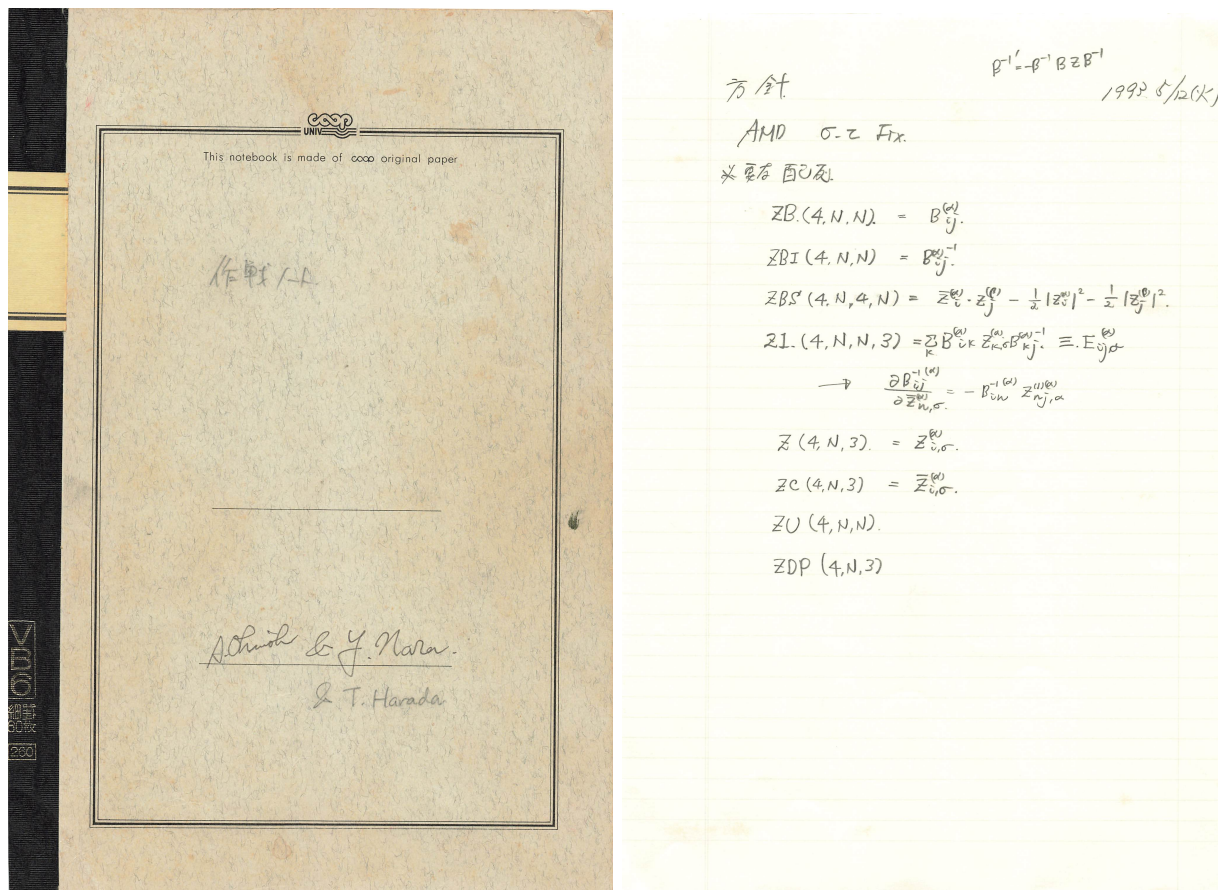 coop
UNIV
This notebook is made of coop original paper
作戦ノート
A.Ohnishi & Y. Nara.
& T. Harada
VB6
260
B⁻¹′=-B⁻¹BZB⁻¹
方針
1993 5/12(火)
AMD σ-τ Fix.
※ 要な 配列
ZB.(4,N,N). = B_{ij}^{(α)}.
ZBI(4,N,N) = B_{ij}^{(α)-1}.
ZBS(4,N,4,N) = Z̄_i^{(α)}・Z_j^{(β)} - 1/2|Z_i^{(α)}|² - 1/2|Z_j^{(β)}|².
ZI.(4,N,N,3) = Σ_k B_{ik}^{(α)} Z_{k,σ}^{(α)} B_{kj}^{(α)-1} ≡. E_{ij,σ}^{(α)}
→ ∂B_{ij}^{-1(α)}/∂Z̄_{n,σ}^{(α)}. = - B_{in}^{-1(α)} Z_{nj,α}^{(1)(α)}
Z(4,N,3). = Z_{i,σ}^{(α)}.
ZC(4,N,3) = Z̄_{i,σ}^{(α)}.
ZU(4,N,N).
ZDP(4,N,3)